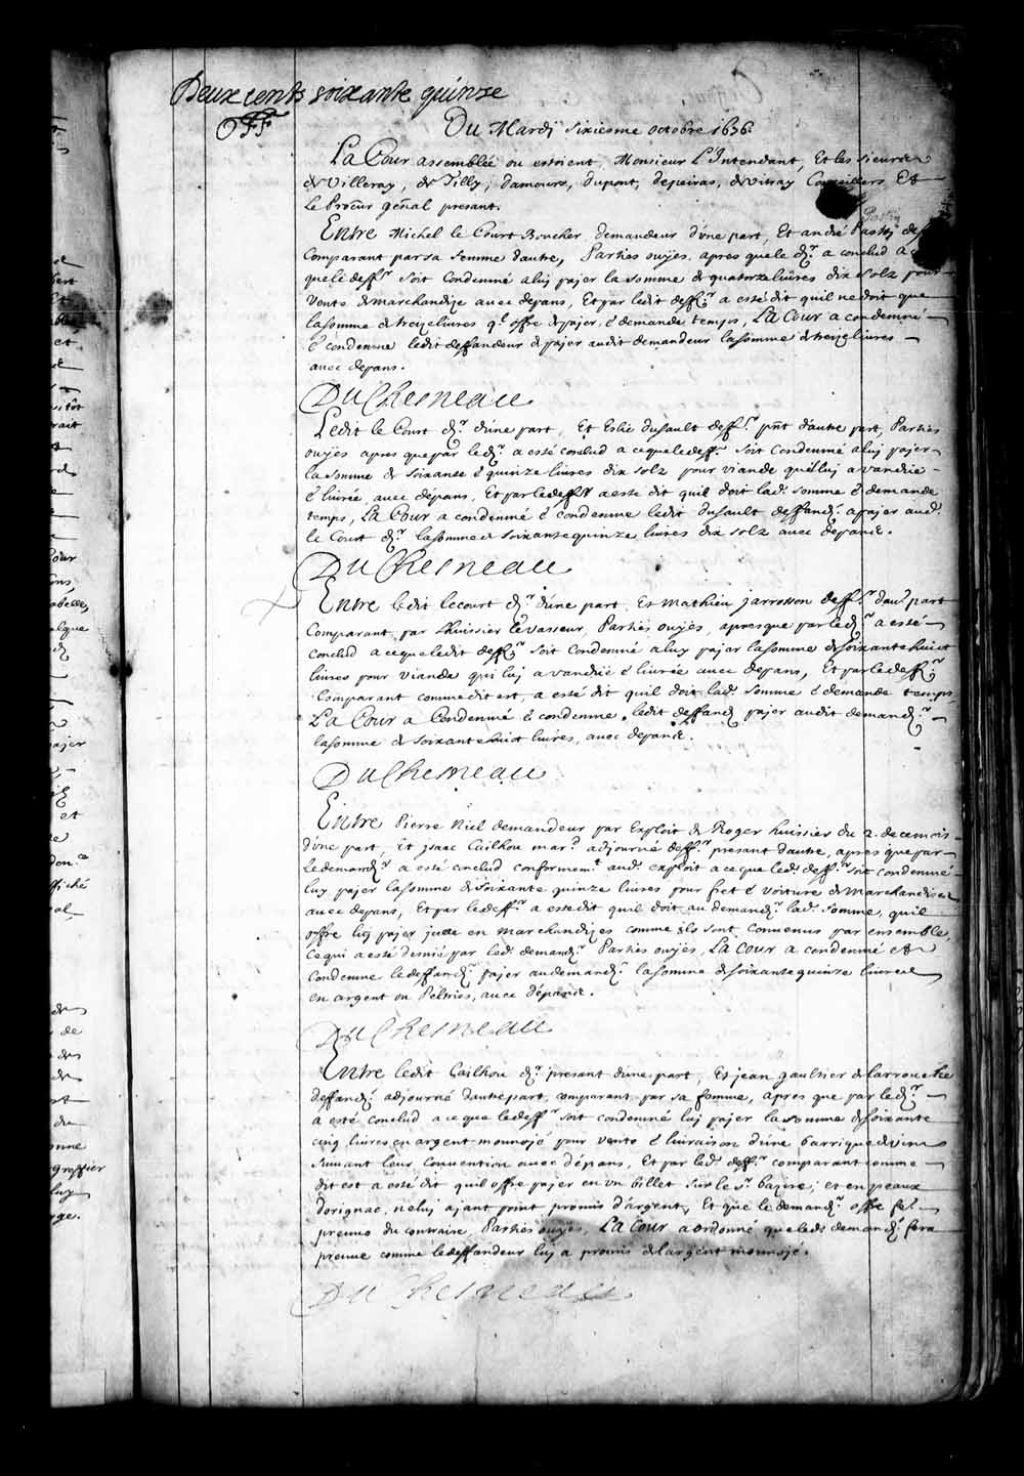 Deux cents soixante quinze
Du Mardi sixiesme octobre 1676.
La Cour assemblée ou estoient, Monsieur L'Intendant, Et les sieurs
de Villeray, de Tilly, damours, dupont, depeiras, de vitray Conseillers Et
Le Procur gen̄al present.
Entre Michel le Court Boucher demandeur d'une part, Et andré
Comparant par sa femme dautre, Parties ouyes, apres que le dr a conclud a
que le deffr soit Condemné a luy payer la somme de quatorze livres dix solz pour
vente de marchandize avec depans, Et par ledit deffr a esté dit quil ne doit que
la somme de treize livres ql offre de payer, & demande temps, La Cour a condemné
& condemne ledit deffandeur de payer audit demandeur la somme de treize livres
avec depans.
DuChesneau
Ledit le Court dr d'une part, Et Eslie dusault deffr pn̄t d'autre part, Parties
ouyes apres que par le dr a esté conclud a ce que le deffr soit Condemné a luy payer
la somme de soixante & quinze livres dix solz pour viande qu'il luy a vandüe
& livrée, avec depans, Et par le deffr a esté dit quil doit lad. somme & demande
temps, La Cour a condemné & condemne ledit dusault deffandr a payer aud.
le Court dr la somme de soixante quinze livres dix solz avec depans.
DuChesneau
Entre ledit lecourt dr d'une part, Et mathieu jarrosson deffr dau. part
Comparant par Lhuissier levasseur, Parties ouyes, apres que par le dr a esté
conclud a ce que ledit deffr soit Condemné a luy payer la somme de soixante huict
livres pour viande qui luy a vandüe & livrée avec depans, Et par le deffr
Comparant comme dit est, a esté dit quil doit lad. somme & demande temps,
La Cour a Condemné & condemne ledit deffandr payer audit demandr
la somme de soixante huict livres, avec depans.
DuChesneau
Entre Pierre Niel demandeur par Exploit de Roger huissier du 2. de ce mois
d'une part, Et jsaac Cailhou mard adjourné deffr present dautre, apres que par
le demandr a esté conclud conformemt aud. exploit a ce que led. deffr soit condemné
luy payer la somme de soixante quinze livres pour fret & voiture de Marchandises
avec depans, Et par le deffr a esté dit quil doit au demandr lad. somme, quil
offre luy payer en marchandizes comme ils sont convenus par ensemble,
ce qui a esté denié par led. demandr Parties ouyes, La Cour a condemné et
Condemne le deffandr payer au demandr la somme de soixante quinze livres
en argent ou Peltries, avec depans.
DuChesneau
Entre ledit Cailhou dr present d'une part, Et jean gaultier de larrouche
deffandr adjourné dautre part, comparant par sa femme, apres que par le dr
a esté conclud a ce que le deffr soit condemné luy payer la somme de soixante
cinq livres en argent monnoyé pour vente & livraison d'une barrique de vin
suivant leur Convention avec depans, Et par led. deffr comparant comme
dit est a esté dit quil offre payer en un billet sur le sr bazire, et en peaux
dorignac, ne luy ajant point promis d'argent, Et que le demandr offre fe.
preuve du contraire, Parties ouyes, La Cour a ordonné que ledt demandr fera
preuve comme le deffandeur luy a promis de largent monnoye.
DuChesneau